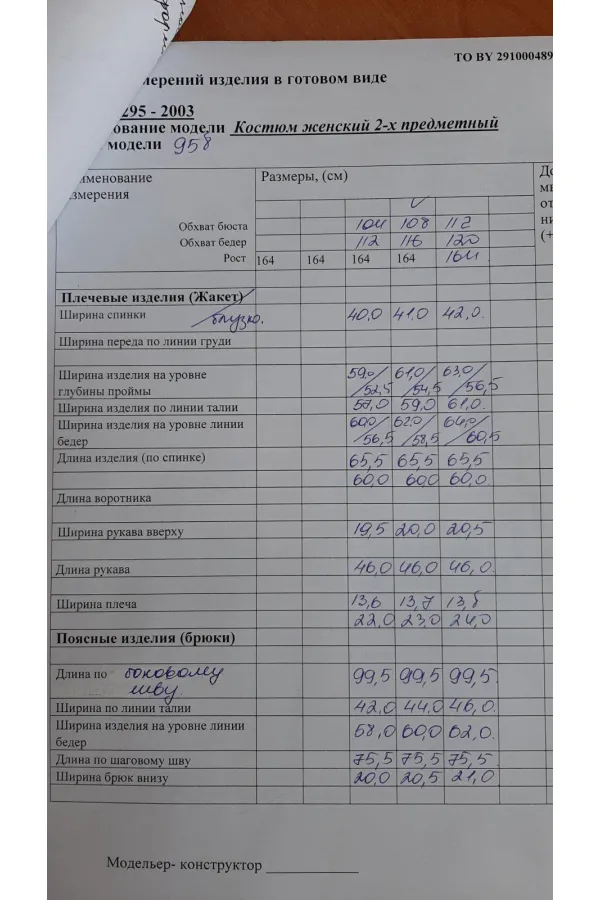 ТО BY 291000489
мерений изделия в готовом виде
295 - 2003
ование модели Костюм женский 2-х предметный
модели 958
именование Размеры, (см)
змерения
Обхват бюста 104 108 112
Обхват бедер 112 116 120
Рост 164 164 164 164 164
Плечевые изделия (Жакет)
Ширина спинки блузко. 40,0 41,0 42,0.
Ширина переда по линии груди
Ширина изделия на уровне 59,0/ 61,0/ 63,0/
глубины проймы /52,5 /54,5 /56,5
Ширина изделия по линии талии 57,0 59,0 61,0.
Ширина изделия на уровне линии 60,0/ 62,0/ 64,0/
бедер /56,5 /58,5 /60,5
Длина изделия (по спинке) 65,5 65,5 65,5
60,0 60,0 60,0.
Длина воротника
Ширина рукава вверху 19,5 20,0 20,5
Длина рукава 46,0 46,0 46,0.
Ширина плеча 13,6 13,7 13,8
22,0 23,0 24,0
Поясные изделия (брюки)
Длина по боковому 99,5 99,5 99,5
шву.
Ширина по линии талии 42,0 44,0 46,0.
Ширина изделия на уровне линии 58,0 60,0 62,0.
бедер
Длина по шаговому шву 75,5 75,5 75,5
Ширина брюк внизу 20,0 20,5 21,0
Модельер- конструктор